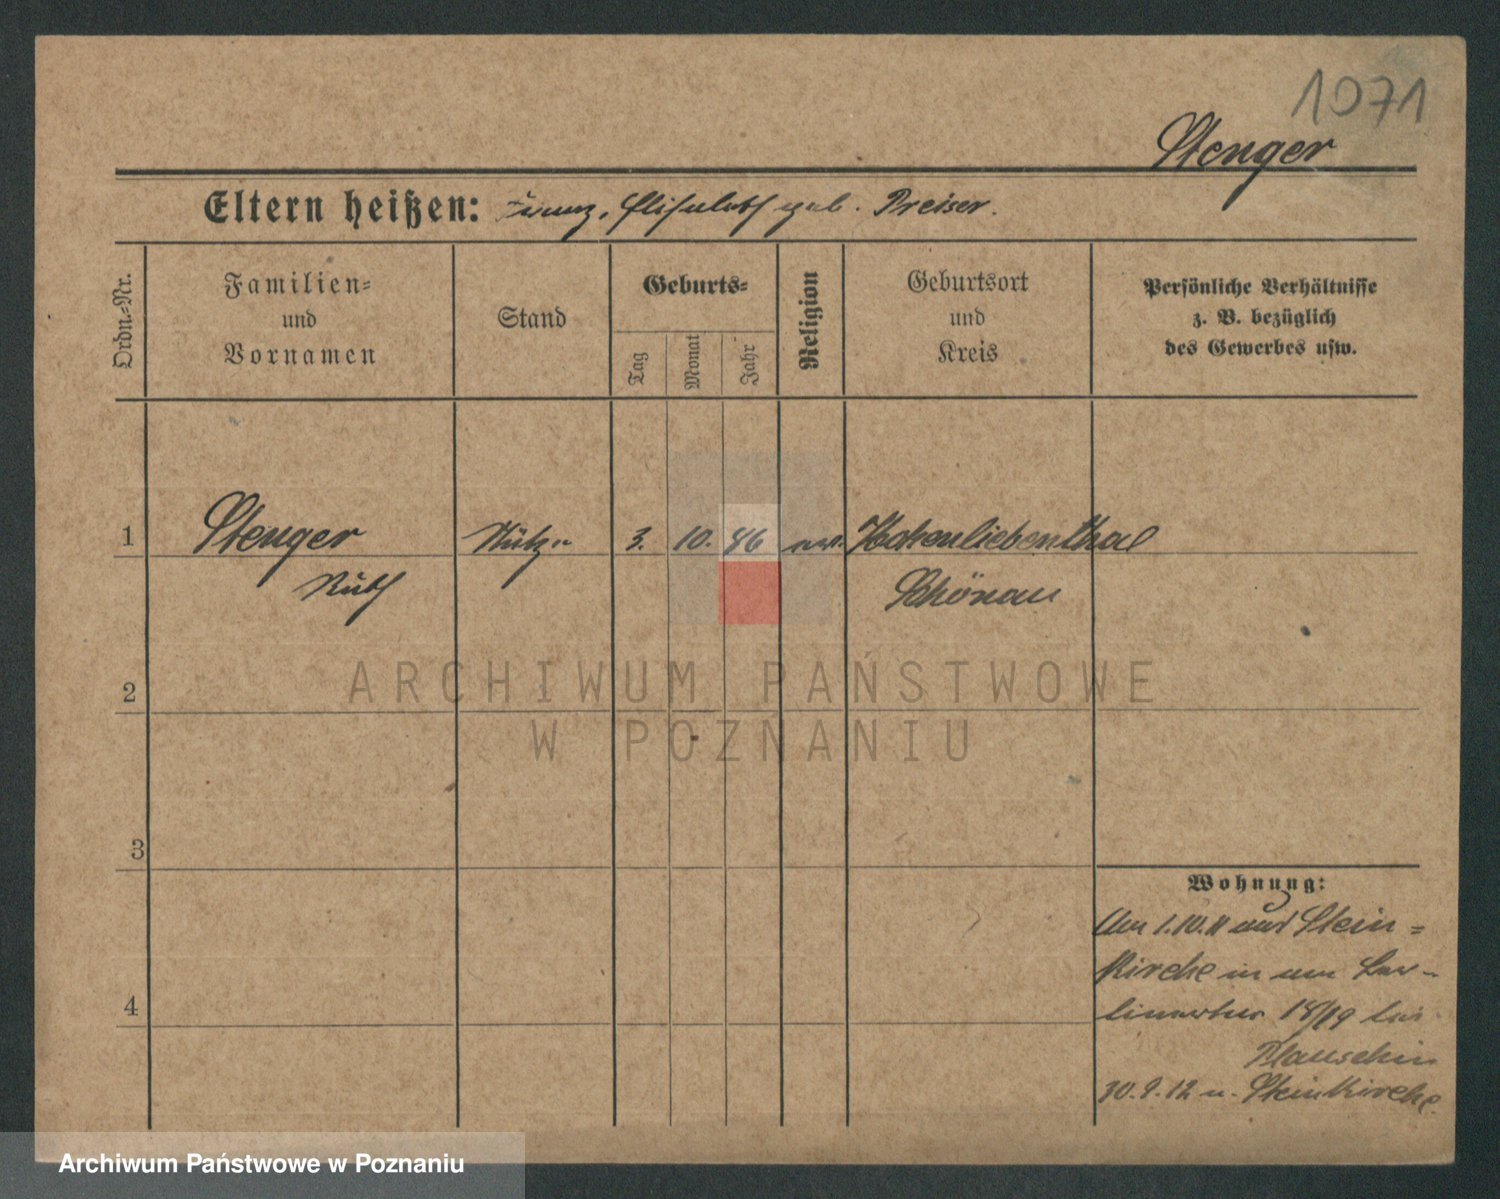 1071
Stenger
Eltern heißen: Franz, Elisabeth geb. Preiser.
Ordn.-Nr.
Familien-
und
Vornamen
Stand
Geburts-
Tag
Monat
Jahr
Religion
Geburtsort
und
Kreis
Persönliche Verhältnisse
z. B. bezüglich
des Gewerbes usw.
1 Stenger Stütze 3. 10. 86 ev. Hohenliebenthal
Ruth Schönau
2
ARCHIWUM PAŃSTWOWE
W POZNANIU
3
Wohnung:
Am 1.10.11 aus Stein=
kirche in
18/19 bei
4
30.9.12 n. Steinkirche.
Archiwum Państwowe w Poznaniu